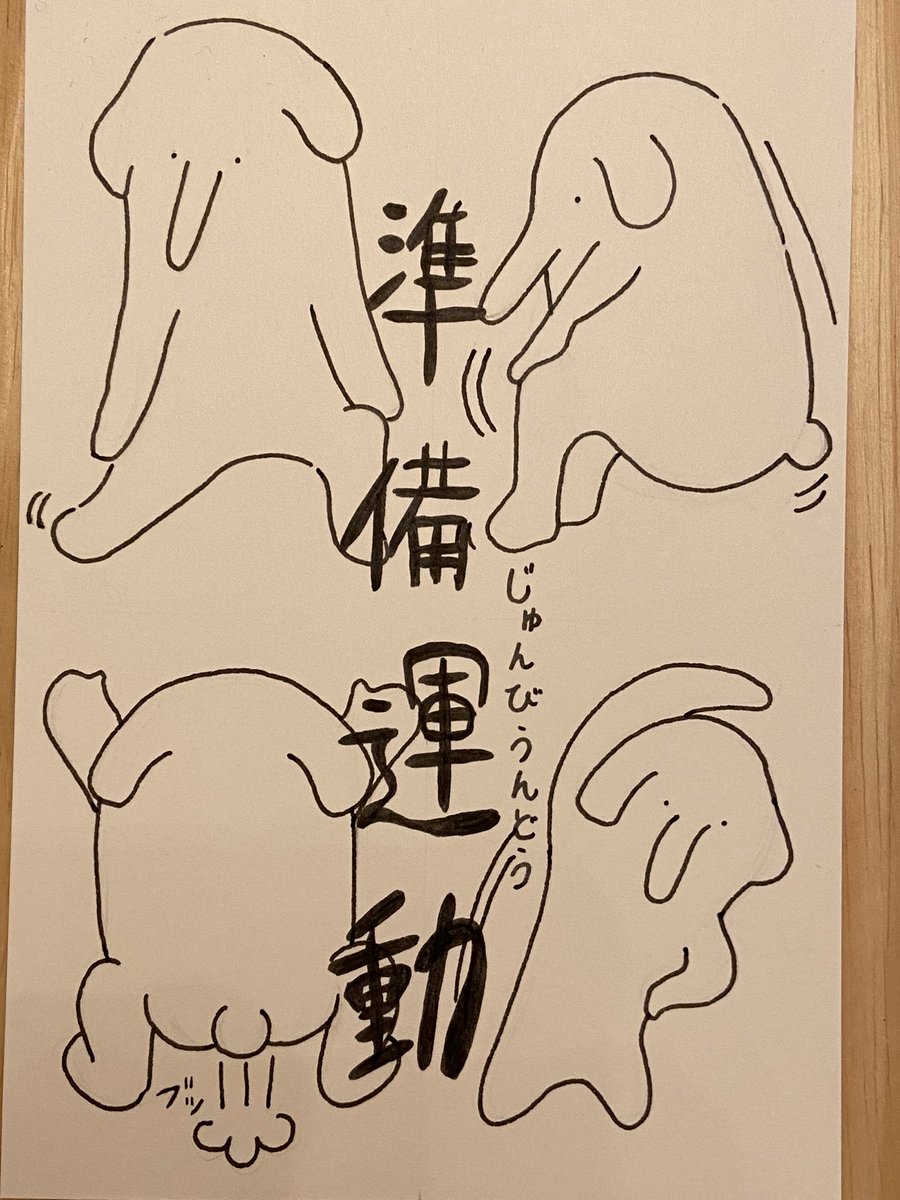 準備運動
じゅんびうんどう
ブッ